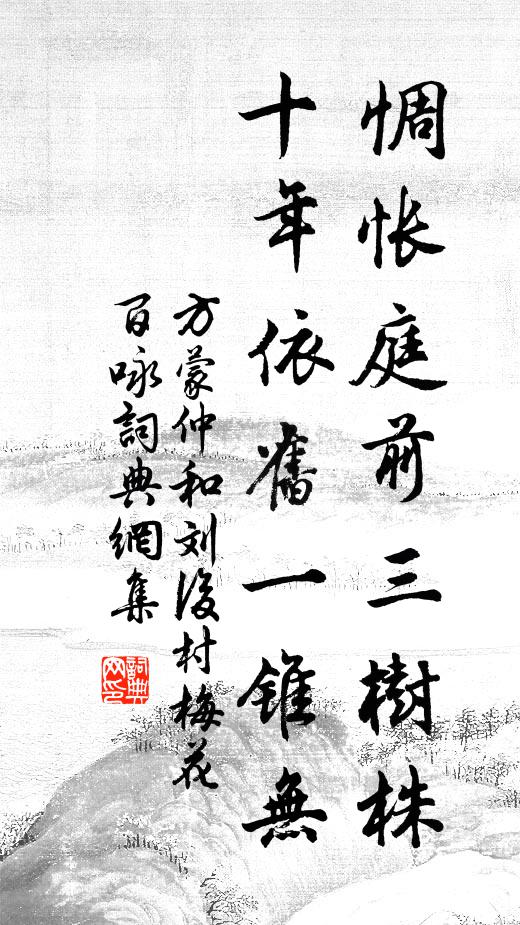 惆悵庭前三樹株
十年依舊一錐無
方蒙仲和刘後村梅花
百咏詞典網集
詞典网印